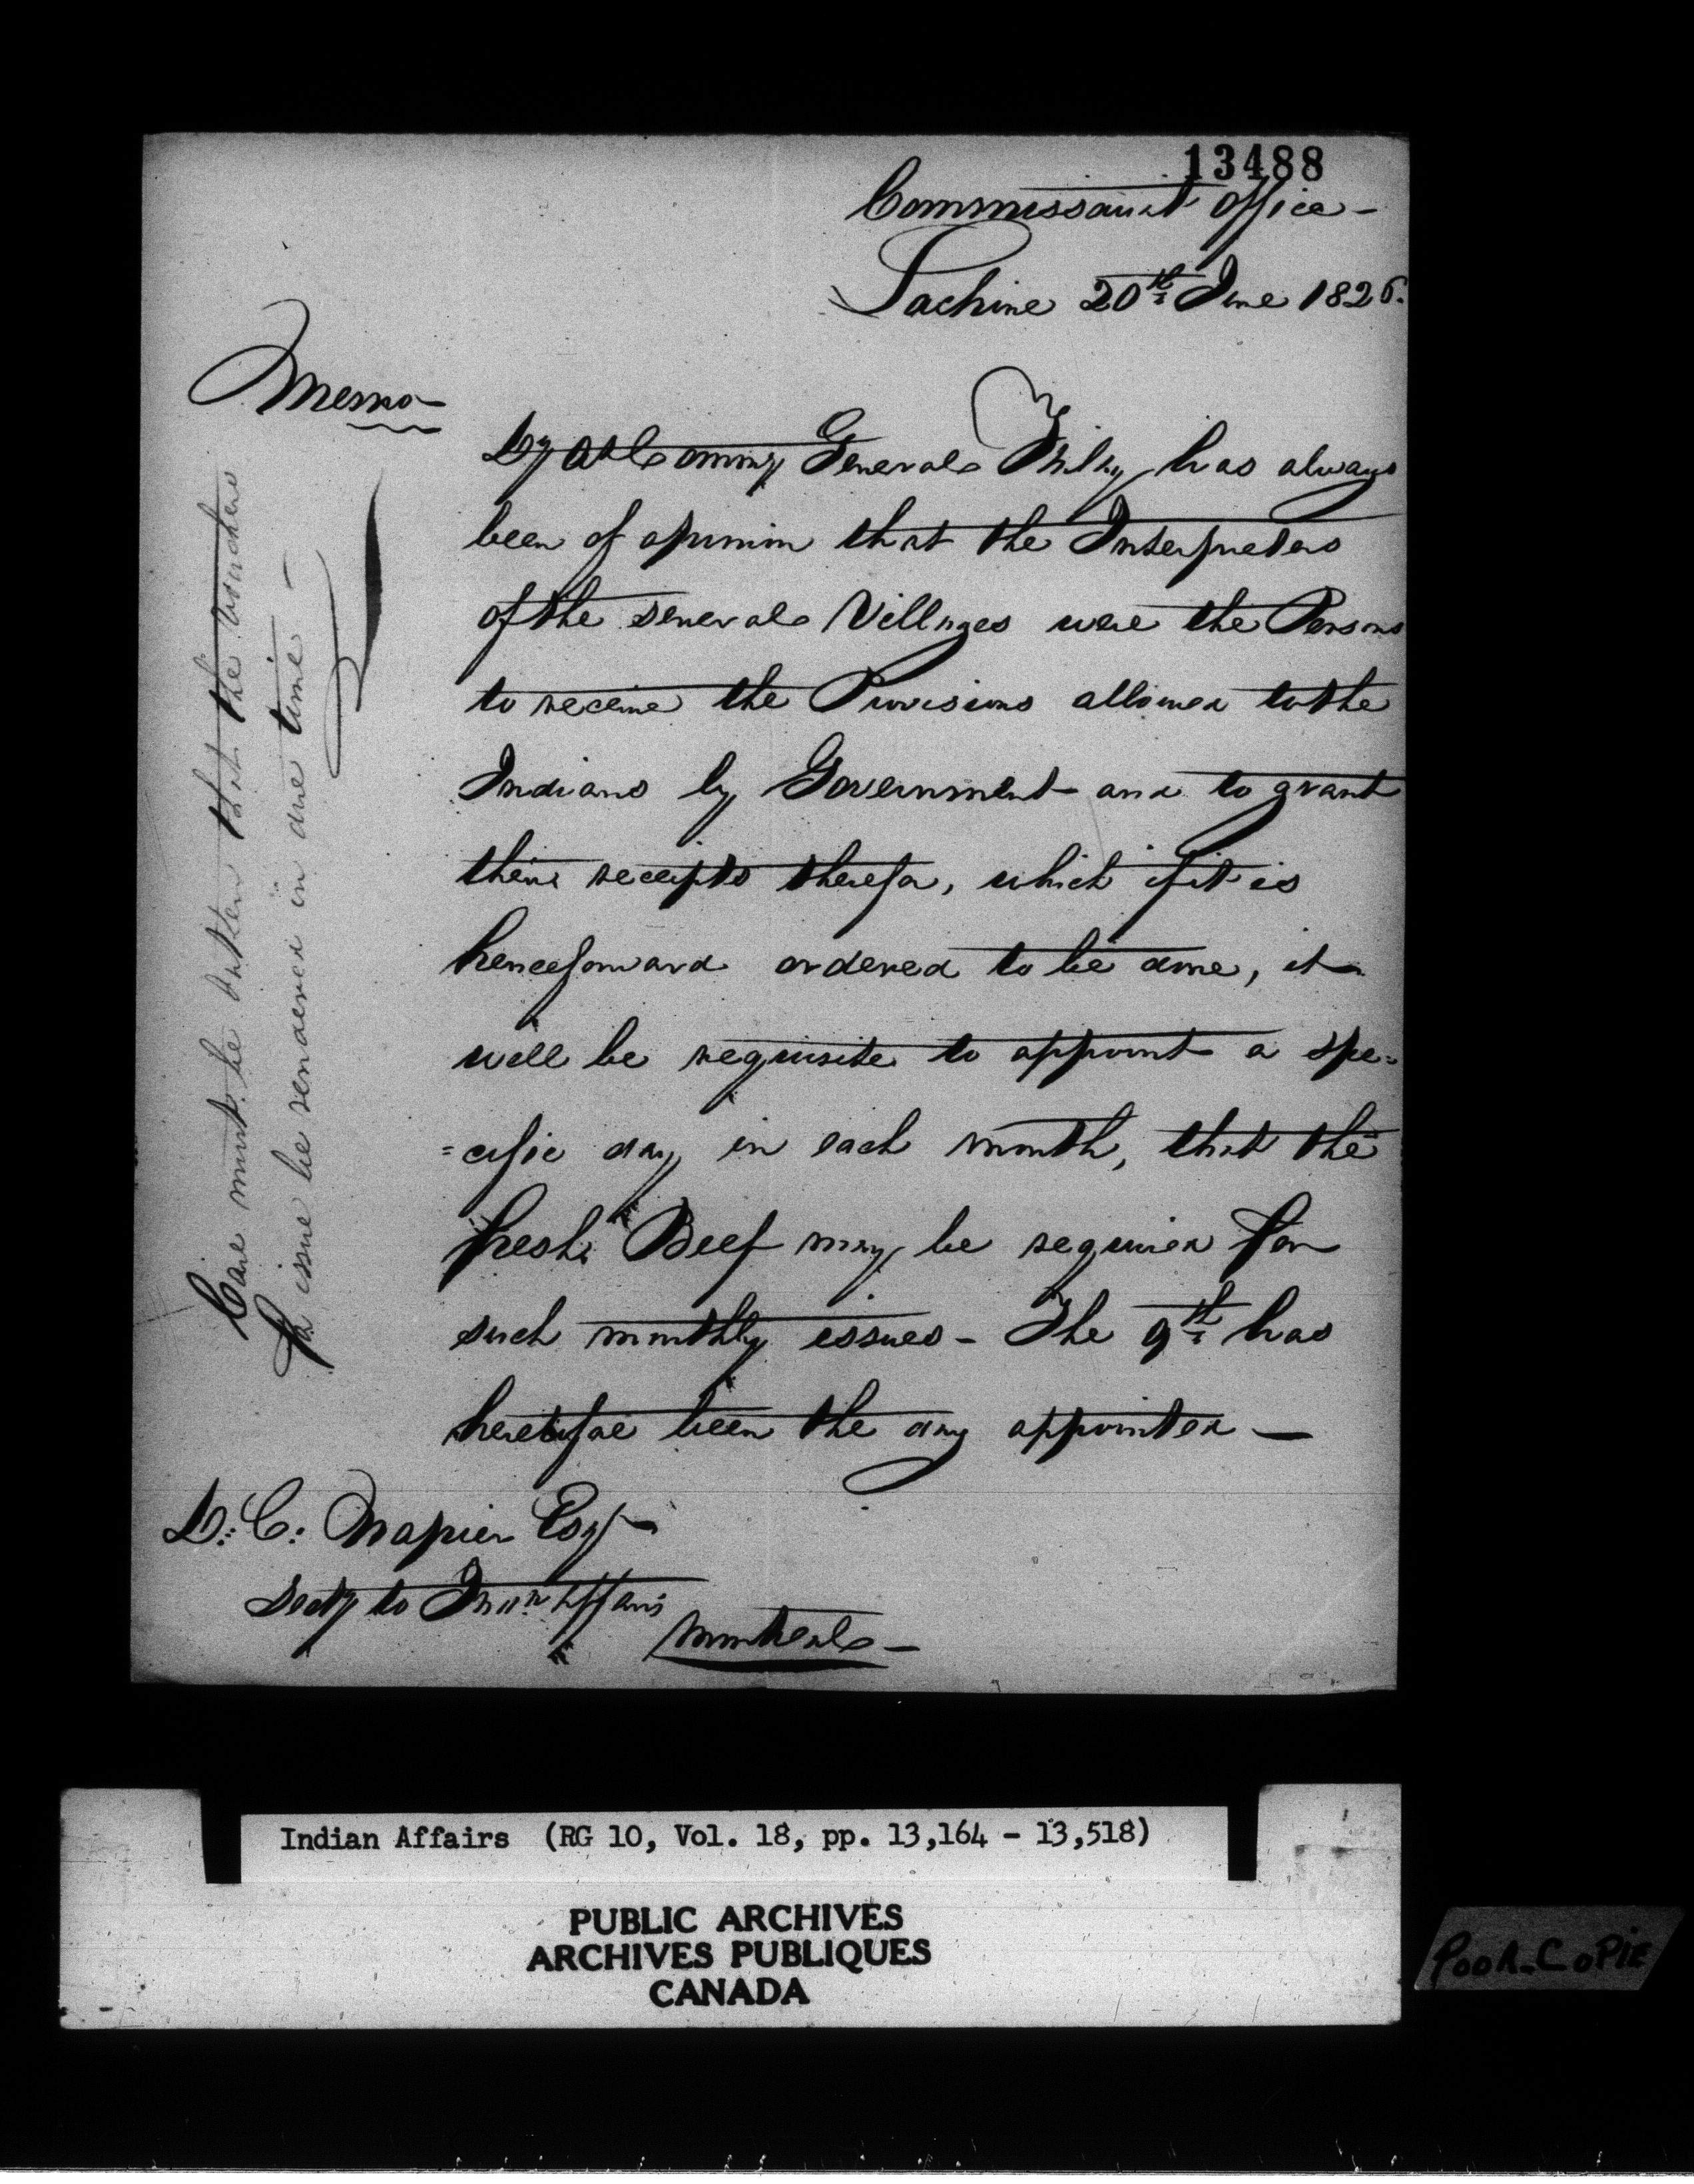 13488
Commissariat Office -
Lachine 20th June 1826.
Memo -
Dy Commy General has always
been of opinion that the Interpreters
of the several Villages were the Persons
to receive the Provisions allowed to the
Indians by Government and to grant
their receipts therefor, which if it is
henceforward ordered to be done, it
will be requisite to appoint a spe=
=cific day in each month, that the
fresh Beef may be required for
such monthly issues - The 9th has
heretofore been the day appointed -
D: C: Napier Esqr
Secty to Indn Affairs
Montreal -
Care must be taken that the Vouchers
for issue be rendered in due time -
Indian Affairs (RG 10, Vol. 18, pp. 13,164 - 13,518)
PUBLIC ARCHIVES
ARCHIVES PUBLIQUES
CANADA
POOR COPIE